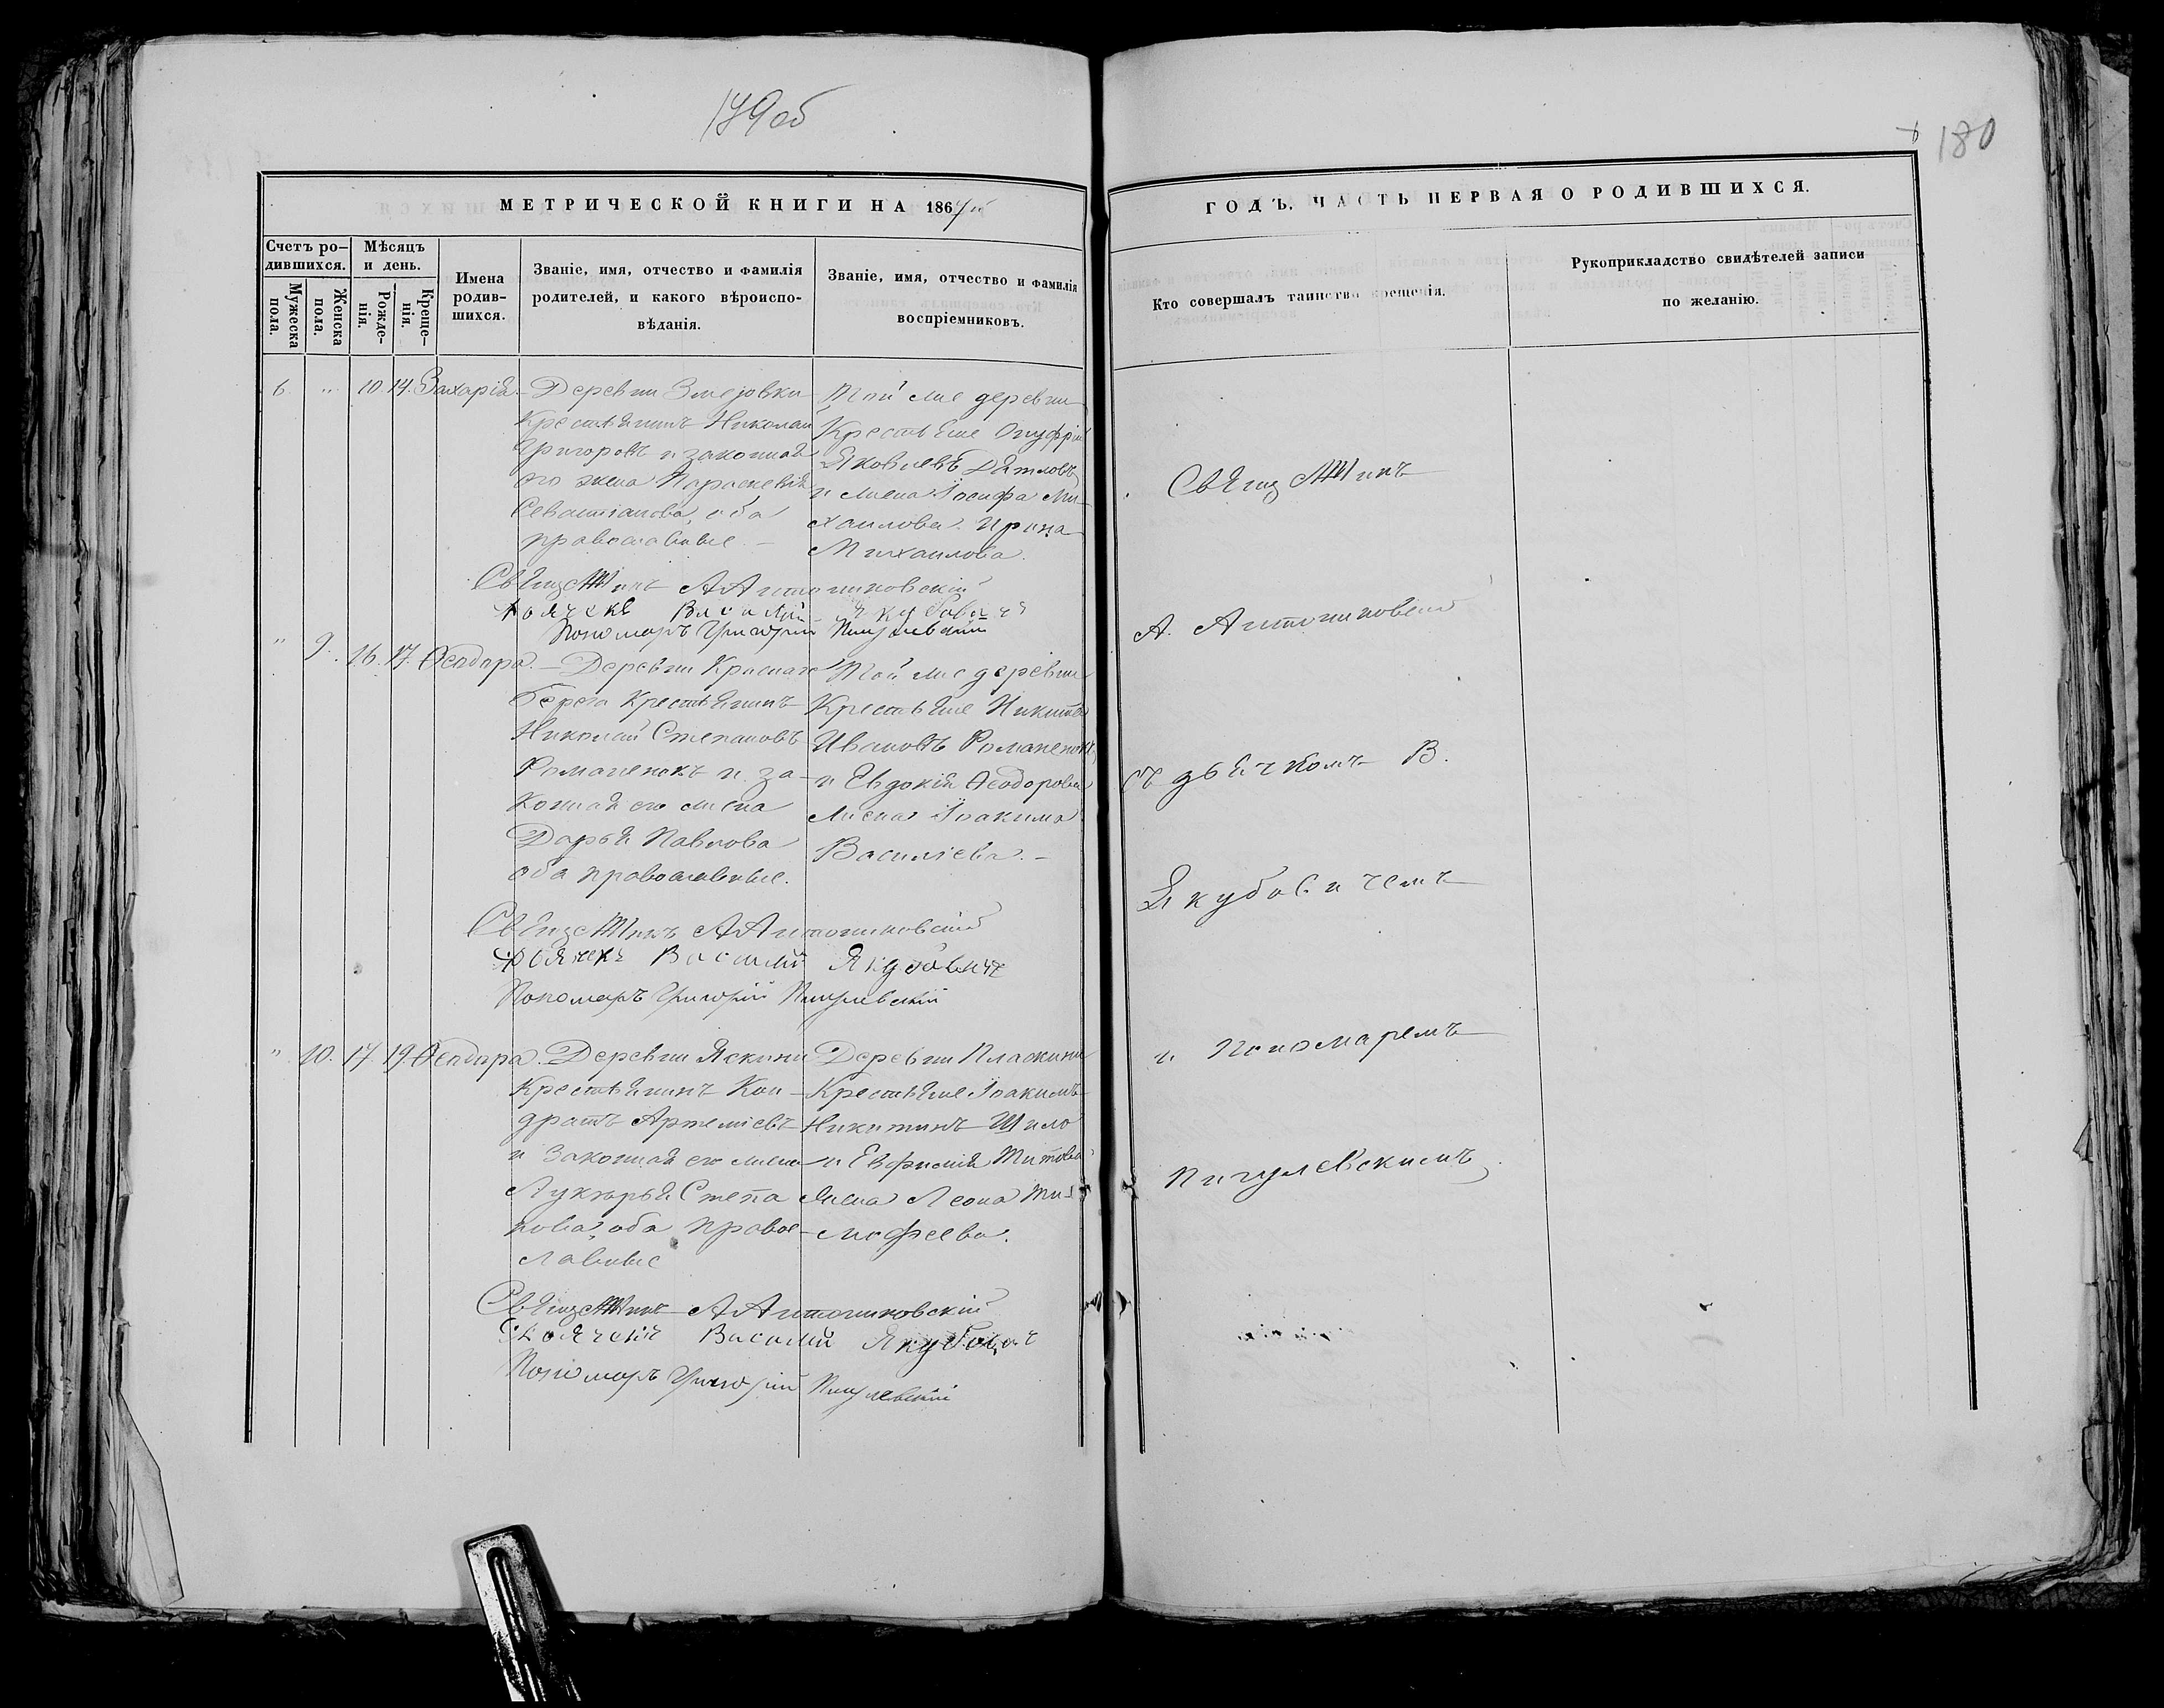 179об
180
МЕТРИЧЕСКОЙ КНИГИ НА 1867й
ГОДЪ. ЧАСТЬ ПЕРВАЯ О РОДИВШИХСЯ.
Счетъ ро-
дившихся.
Мужеска
пола.
Женска
пола.
Мѣсяцъ
и день.
Рожде-
нія.
Креще-
нія.
Имена
родив-
шихся.
Званіе, имя, отчество и фамилія
родителей, и какого вѣроиспо-
вѣданія.
Званіе, имя, отчество и фамилія
воспріемниковъ.
Кто совершалъ таинство крещенія.
Рукоприкладство свидѣтелей записи
по желанію.
6 " 10 14. Захарія.
Деревни
Крестьянинъ Николай
Григоровъ и законная
его жена Параскевія
Севастіанова, оба
православные. –
Той же деревни
Крестьяне Онуфрій
Яковлевъ Дятловъ
и жена Іосифа Ми-
хаилова Ирина
Михаилова.
Священникъ А Антониковскій
Дьячекъ Василій Якубовичъ
Пономарь Григорій Пигулевскій
" 9. 16. 17. Ѳеодора. –
Деревни Краснаго
берега Крестьянинъ
Николай Степановъ
Романенокъ и за-
конная его жена
Дарья Павлова
оба православные.
Той же деревни
Крестьяне Никита
Ивановъ Романенокъ
и Евдокія Ѳеодорова
жена Іоакима
Василіева. –
Священникъ А Антониковскій
Дьячекъ Василій Якубовичъ
Пономарь Григорій Пигулевскій
" 10. 17. 19. Ѳеодора.
Деревни Яскини
Крестьянинъ Кон-
дратъ Артеміевъ
и Законная его жена
Лукерья Степа
нова, оба правос-
лавные
Деревни Пласкини
Крестьяне Іоакимъ
Никитинъ Шило
и Евфимія Титова
жена Леона Ти-
мофеева.
Священникъ А Антониковскій
Дьячекъ Василій Якубовичъ
Пономарь Григорій Пигулевскій
Священникъ
А. Антониковскій
съ дьячкомъ В.
Якубовичемъ
и Пономаремъ
Пигулевскимъ